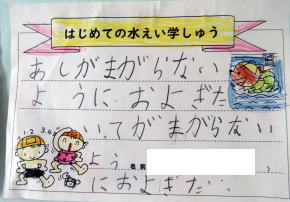 はじめての水えい学しゅう
あしがまがらない
ようにおよぎた
い、てがまがらない
よう
名前
におよぎたい。
1.2 3.4